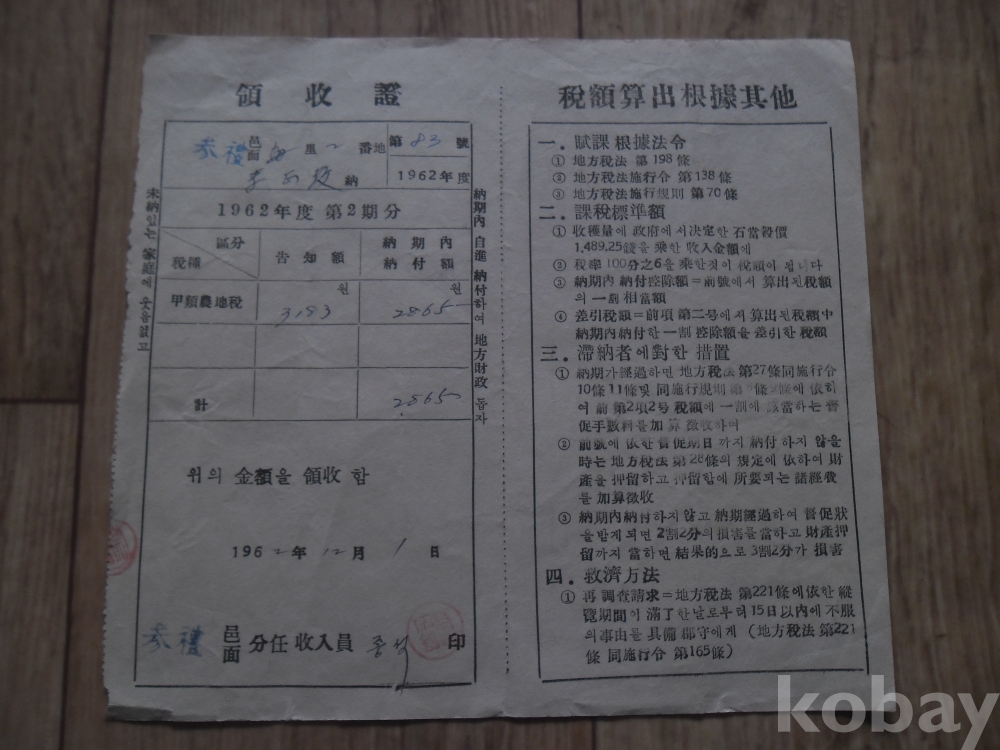 領收證
參禮 邑面 里 2 番地 第 83 號
李 納 1962年度
1962年度 第2期分
區分 稅種 告知額 納期內納付額
甲類農地稅 3183원 2865원
計 2865
위의 金額을 領收함
1962年 12月 1日
參禮 邑面 分任 收入員 印
未納있는 家庭에 웃음없고
納期內 自進 納付하여 地方財政 돕자
稅額算出根據其他
一. 賦課根據法令
① 地方稅法 第198條
② 地方稅法施行令 第138條
③ 地方稅法施行規則 第70條
二. 課稅標準額
① 收穫量에 政府에서 決定한 石當穀價
1,489.25錢을 乘한 收入金額에
② 稅率100分之6을 乘한것이 稅額이 됩니다
③ 納期內 納付控除額=前號에서 算出된稅額
의 一割 相當額
④ 差引稅額=前項 第二号에서 算出된稅額中
納期內納付한 一割 控除額을 差引한 稅額
三. 滯納者에對한 措置
① 納期가經過하면 地方稅法 第27條同施行令
10條 11條및 同施行規則 第 條에 依하
여 前 第2項2号 稅額에 一割에 該當하는 督
促手數料를加算 徵收하며
② 前號에 依한 督促期日까지 納付하지 않을
時는 地方稅法 第28條의 規定에 依하여 財
產을 押留하고 押留함에 所要되는 諸經費
를 加算徵收
③ 納期內納付하지않고 納期經過하여 督促狀
을받게 되면 2割2分의 損害를當하고 財產押
留까지 當하면 結果的으로 3割2分가 損害
四. 救濟方法
① 再調查請求=地方稅法 第221條에依한 縱
覽期間이 滿了한날로부터 15日以內에 不服
의事由를 具備 郡守에게 (地方稅法 第221
條 同施行令 第165條)
kobay